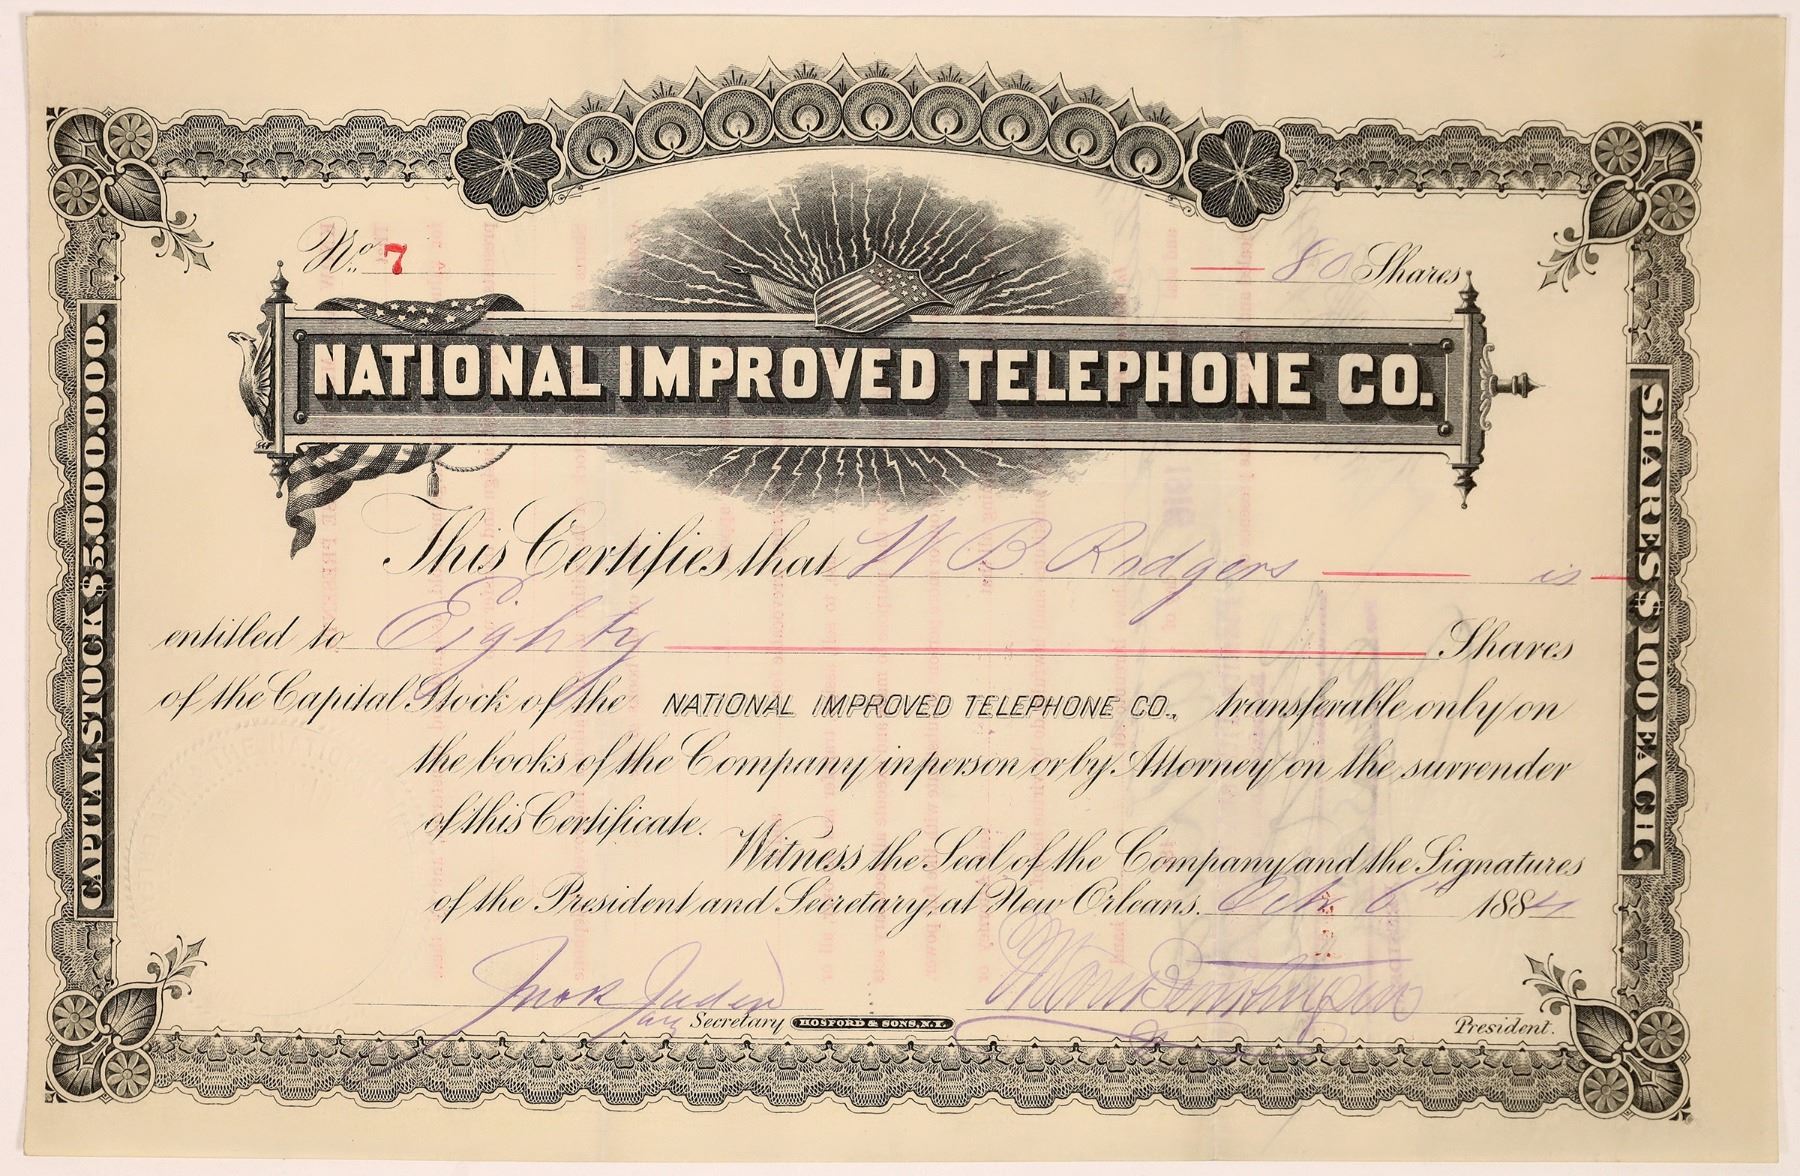 No. 7
80 Shares
NATIONAL IMPROVED TELEPHONE CO.
CAPITAL STOCK $5.000.000.
SHARES $100 EACH
This Certifies that W B Rodgers is
entitled to Eighty Shares
of the Capital Stock of the NATIONAL IMPROVED TELEPHONE CO., transferable only on
the books of the Company in person or by Attorney on the surrender
of this Certificate.
Witness the Seal of the Company and the Signatures
of the President and Secretary, at New Orleans. Oct 6th 1884
Secretary
HOSFORD & SONS, N.Y.
President.